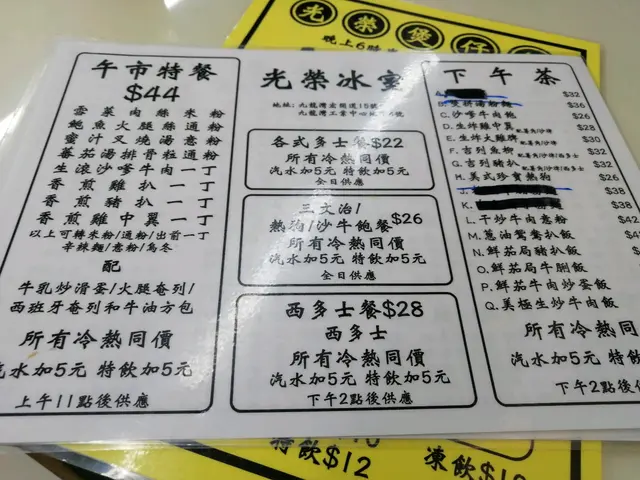 光榮煲仔
晚上6時
午市特餐
$44
雪菜肉絲米粉
鮑魚火腿絲通粉
蜜汁叉燒湯意粉
蕃茄湯排骨粒通粉
生滾沙嗲牛肉一丁
香煎雞扒一丁
香煎豬扒一丁
香煎雞中翼一丁
以上可轉米粉/通粉/出前一丁
辛辣麵/意粉/烏冬
配
牛乳炒滑蛋/火腿奄列/
西班牙奄列和牛油方包
所有冷熱同價
汽水加5元 特飲加5元
上午11點後供應
光榮冰室
地址: 九龍灣宏開道15號
九龍灣工業中心地下
各式多士餐$22
所有冷熱同價
汽水加5元 特飲加5元
全日供應
三文治/
熱狗/沙牛飽餐$26
所有冷熱同價
汽水加5元 特飲加5元
全日供應
西多士餐$28
西多士
所有冷熱同價
汽水加5元 特飲加5元
下午2點後供應
下午茶
A. $32
B. 雙拼湯粉麵 $36
C. 沙嗲牛肉飽 $26
D. 生炸雞中翼 $28
E. 生炸大雞脾 $30
F. 吉列魚柳 $32
G. 吉列豬扒 $32
H. 美式珍寶熱狗 $26
J. $38
K. $38
L. 干炒牛肉意粉 $42
M. 蔥油鴛鴦扒飯
N. 鮮茄焗豬扒飯
O. 鮮茄焗牛脷飯
P. 鮮茄牛肉炒蛋飯
Q. 美極生炒牛肉飯
所有冷熱同
汽水加5元 特飲加5元
下午2點後供
特飲$12
凍飲